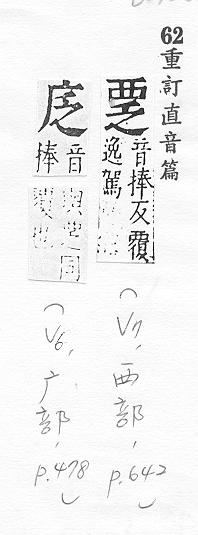 62重訂直音篇
覂
音捧反覆
逸駕
(V7, 西部, p.642)
音
捧
與覂同
覆也
(V6, 广部, p.478)